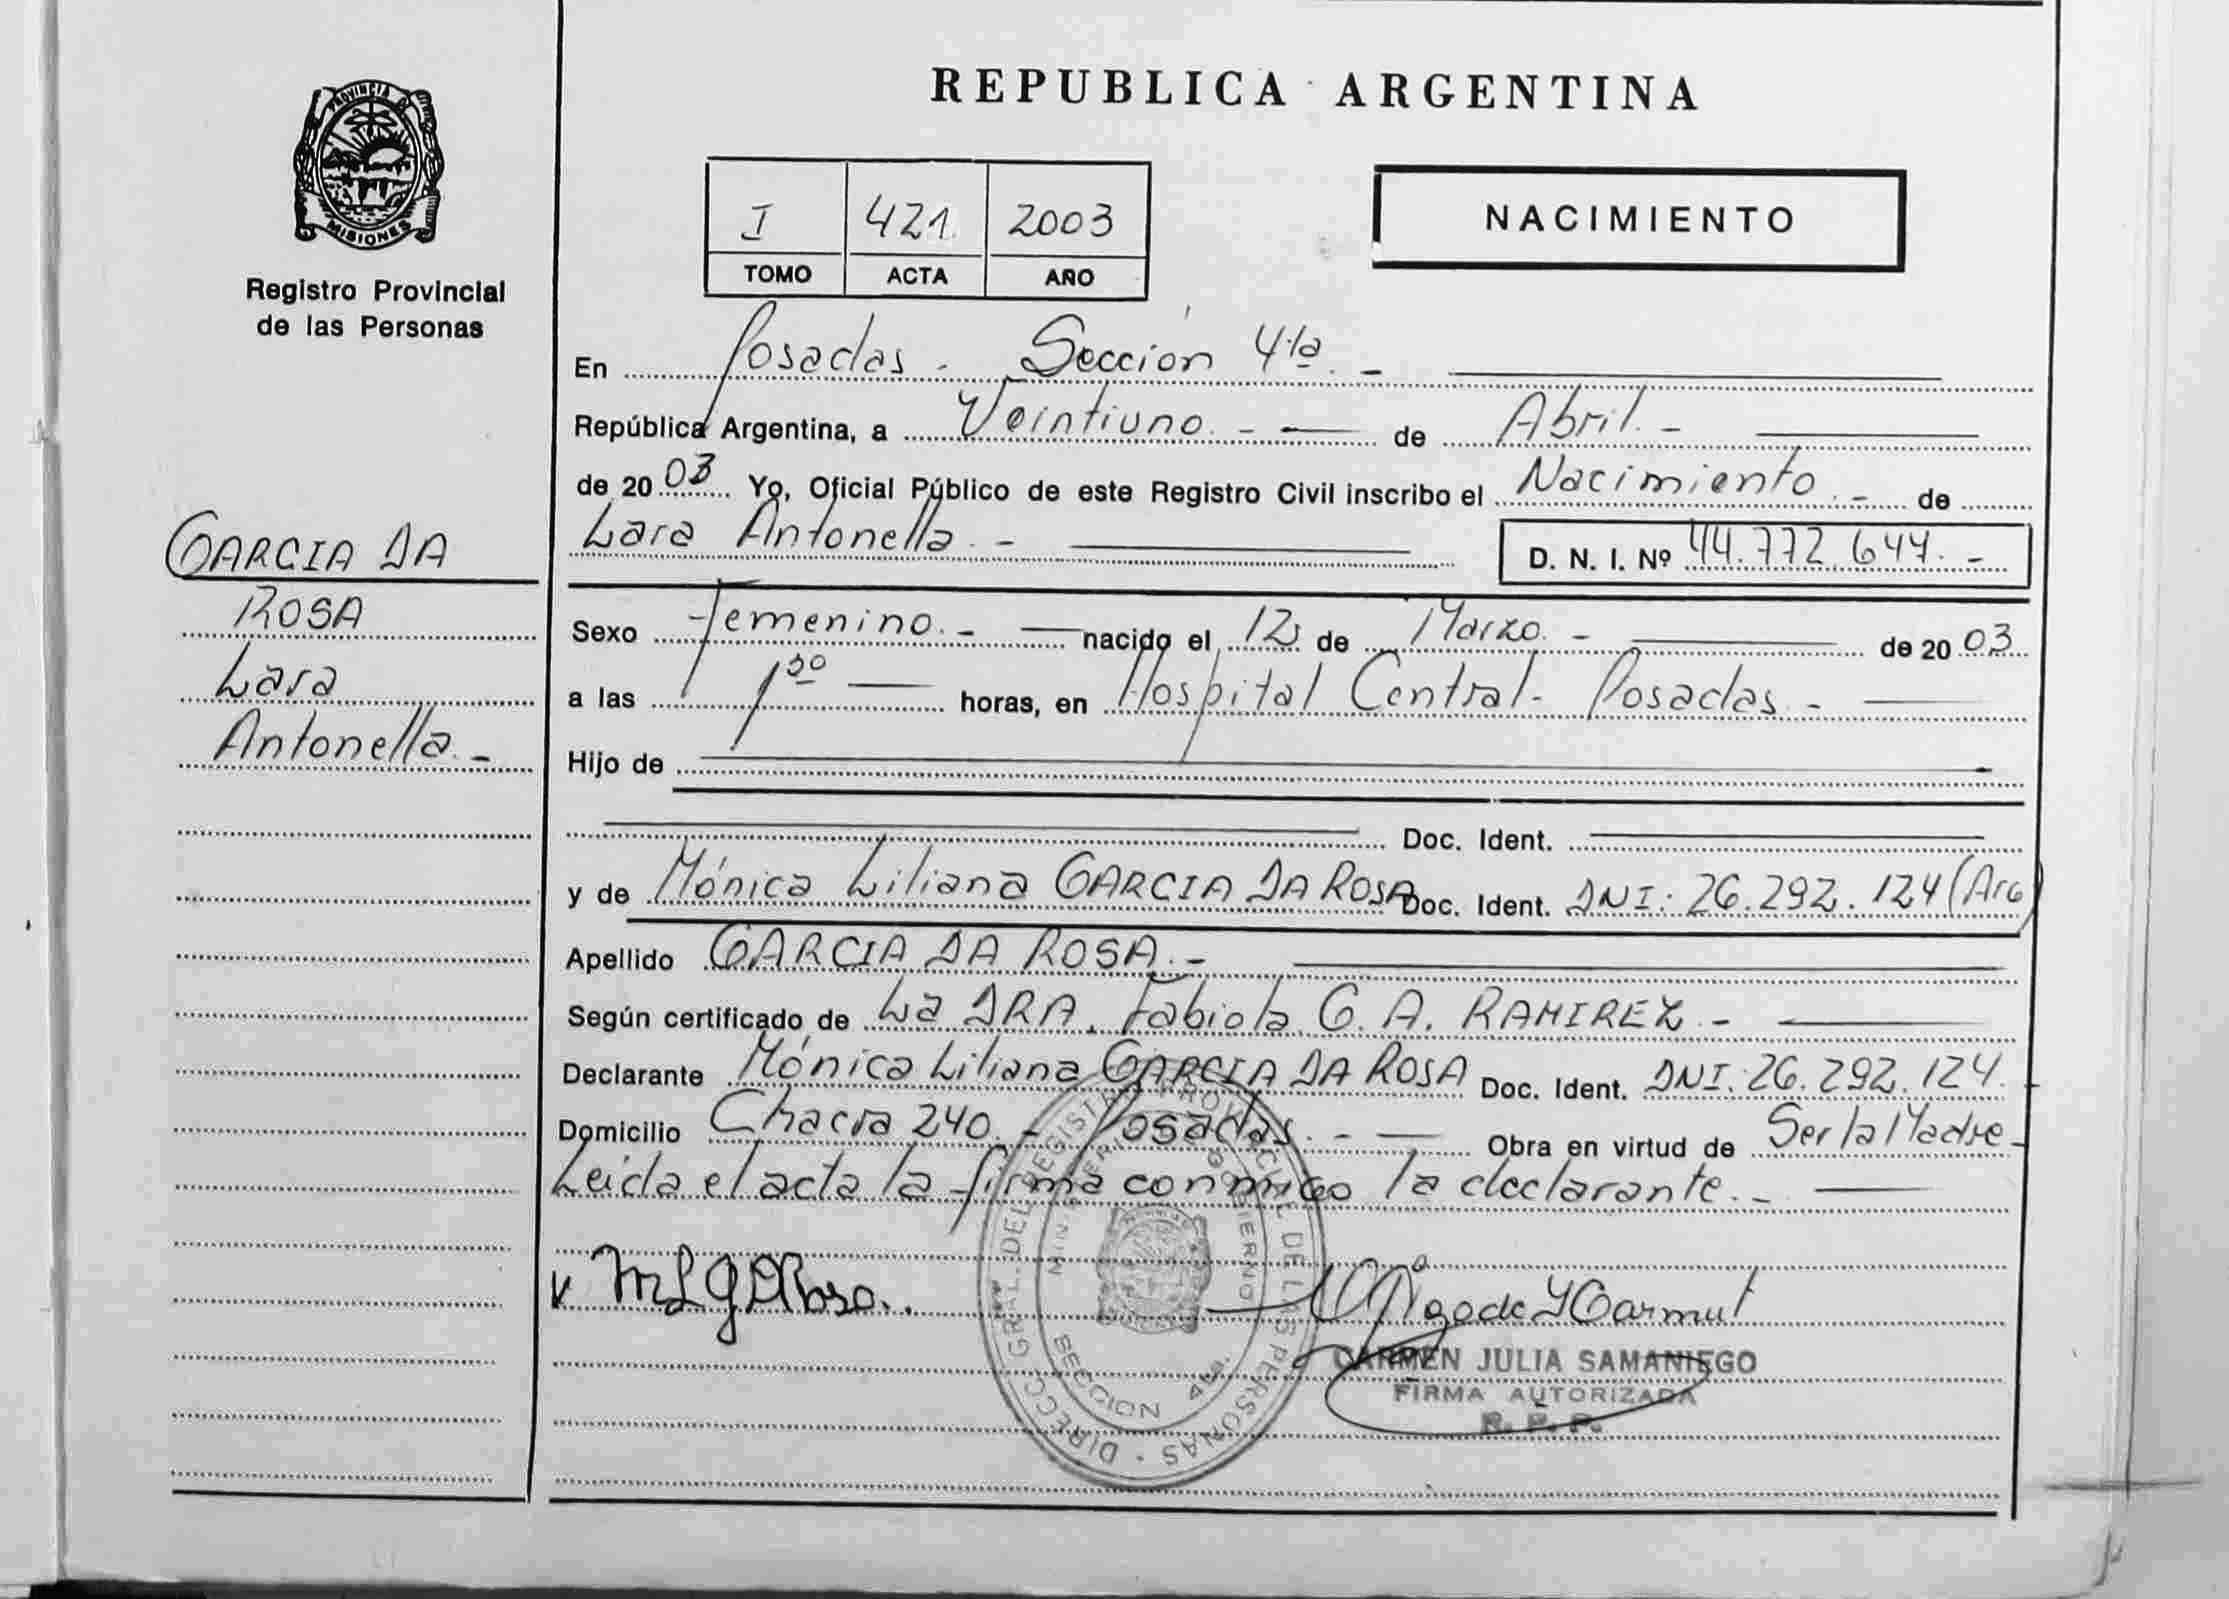 PROVINCIA DE
MISIONES
Registro Provincial
de las Personas
GARCIA DA
ROSA
Lara
Antonella.-
REPUBLICA ARGENTINA
I 421 2003
TOMO ACTA AÑO
NACIMIENTO
En Posadas - Sección 4ta. -
República Argentina, a Veintiuno. - de Abril. -
de 2003 Yo, Oficial Público de este Registro Civil inscribo el Nacimiento. - de
Lara Antonella. - D. N. I. Nº 44.772.647. -
Sexo Femenino. - nacido el 12 de Marzo. - de 2003
a las 1³⁰ horas, en Hospital Central - Posadas. -
Hijo de
Doc. Ident.
y de Mónica Liliana GARCIA DA ROSA Doc. Ident. DNI: 26.292.124 (Arg)
Apellido GARCIA DA ROSA. -
Según certificado de La DRA. Fabiola G. A. RAMIREZ. -
Declarante Mónica Liliana GARCIA DA ROSA Doc. Ident. DNI: 26.292.124.
Domicilio Chacra 240. - Posadas. - Obra en virtud de Ser la Madre -
Leída el acta la firma conmigo la declarante. -
DIRECC. GRAL. DEL REGISTRO PROVINCIAL DE LAS PERSONAS
MINISTERIO DE GOBIERNO
SECCION 4ta.
CARMEN JULIA SAMANIEGO
FIRMA AUTORIZADA
R. P. P.